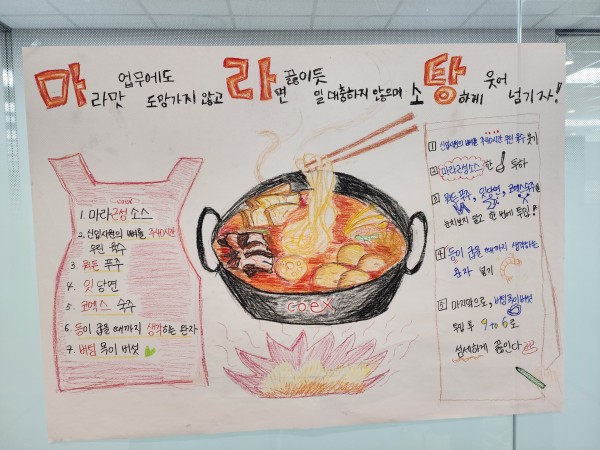 마라맛 업무에도 도망가지 않고
라면 끓이듯 일 대충하지 않으며
소탕하게 웃어 넘기자!
coex
1. 마라근성 소스
2. 신입사원의 뼈를 주40시간
우린 육수
3. 뭐든 푸주
4. 잇 당면
5. 코엑스 숙주
6. 등이 굽을 때까지 생각하는 완자
7. 버팀 목이 버섯
coex
1 신입사원의 뼈를 주40시간 우린 육수 붓기
2 마라근성소스 한 투하
3 뭐든 푸주, 잇당면, 코엑스숙주를
눈치보지 말고 한 번에 투입!
4 등이 굽을 때까지 생각하는
완자 넣기
5 마지막으로, 버팀 목이버섯
투입 후 9 to 6로
섬세하게 끓인다